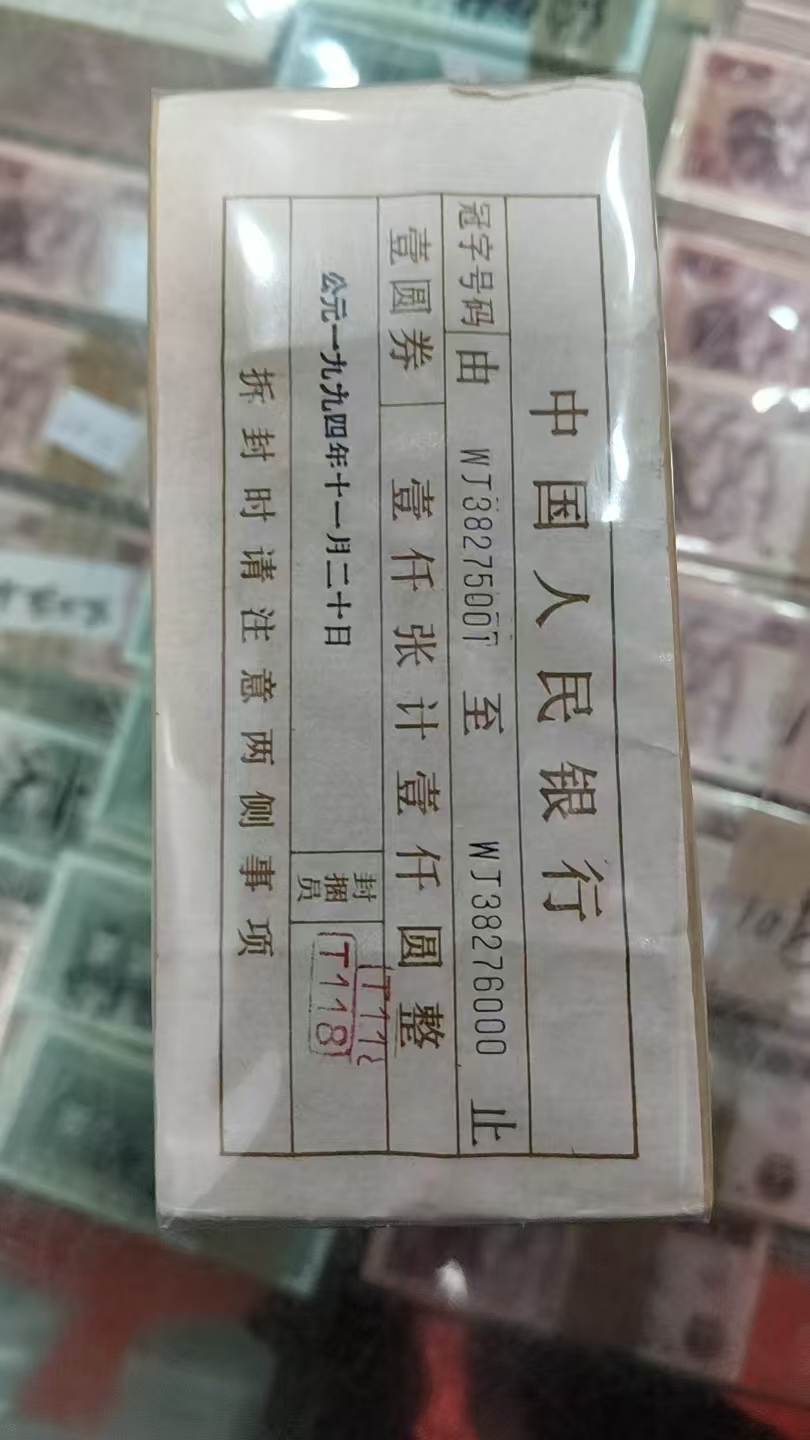 中国人民银行
冠字号码 由 WJ38275001 至 WJ38276000 止
壹圆券 壹仟张计壹仟圆整
公元一九九四年十一月二十日 封捆员 T118
拆封时请注意两侧事项